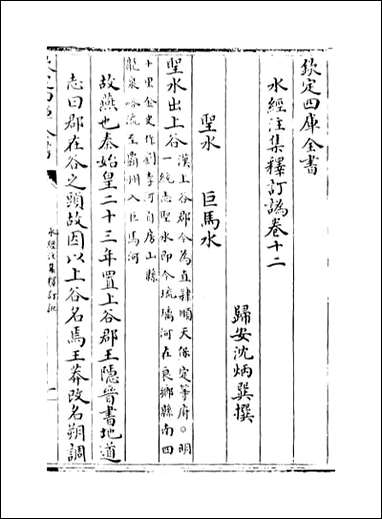 欽定四庫全書
水經注集釋訂譌卷十二
歸安沈炳巽撰
聖水　巨馬水
聖水出上谷漢上谷郡今為直隸順天保定等府○明
一統志聖水即今琉璃河在良鄉縣南四
十里金史作劉李河自房山縣
龍泉峪流至霸州入巨馬河
故燕也秦始皇二十三年置上谷郡王隱晉書地道
志曰郡在谷之頭故因以上谷名焉王莽改名朔調
欽定四庫全書
水經注集釋訂訛
一